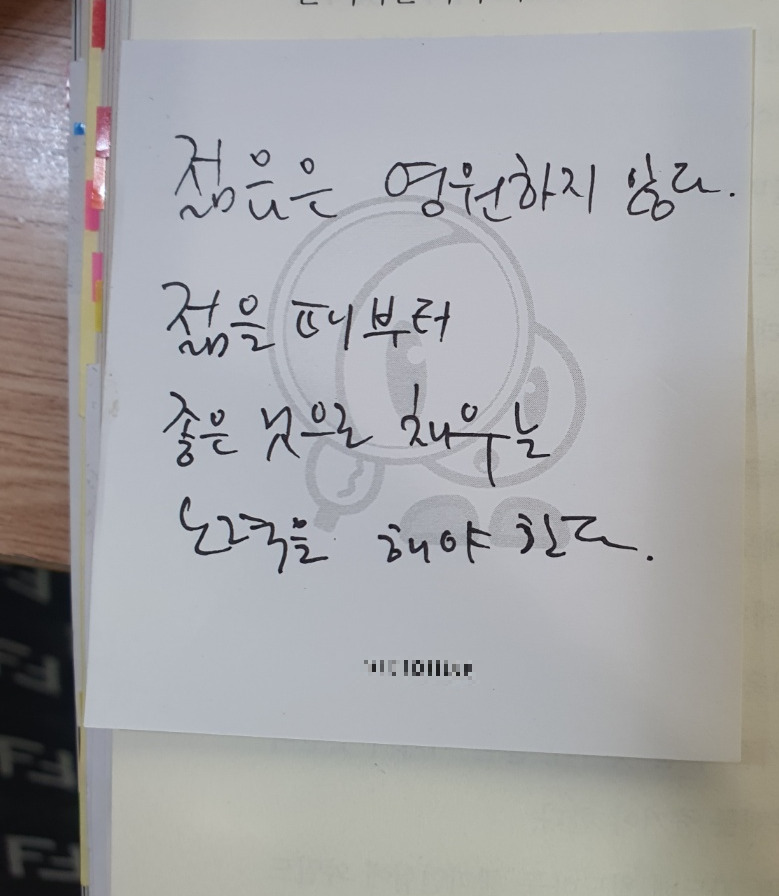 젊음은 영원하지 않다.
젊을 때부터
좋은 것으로 채우는
노력을 해야 한다.